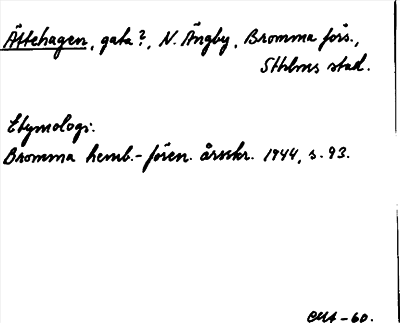 Ättehagen, gata?, N. Ängby, Bromma förs.,
Sthlms stad.
Etymologi:
Bromma hemb.-fören. årsskr. 1944, s. 93.
-60.